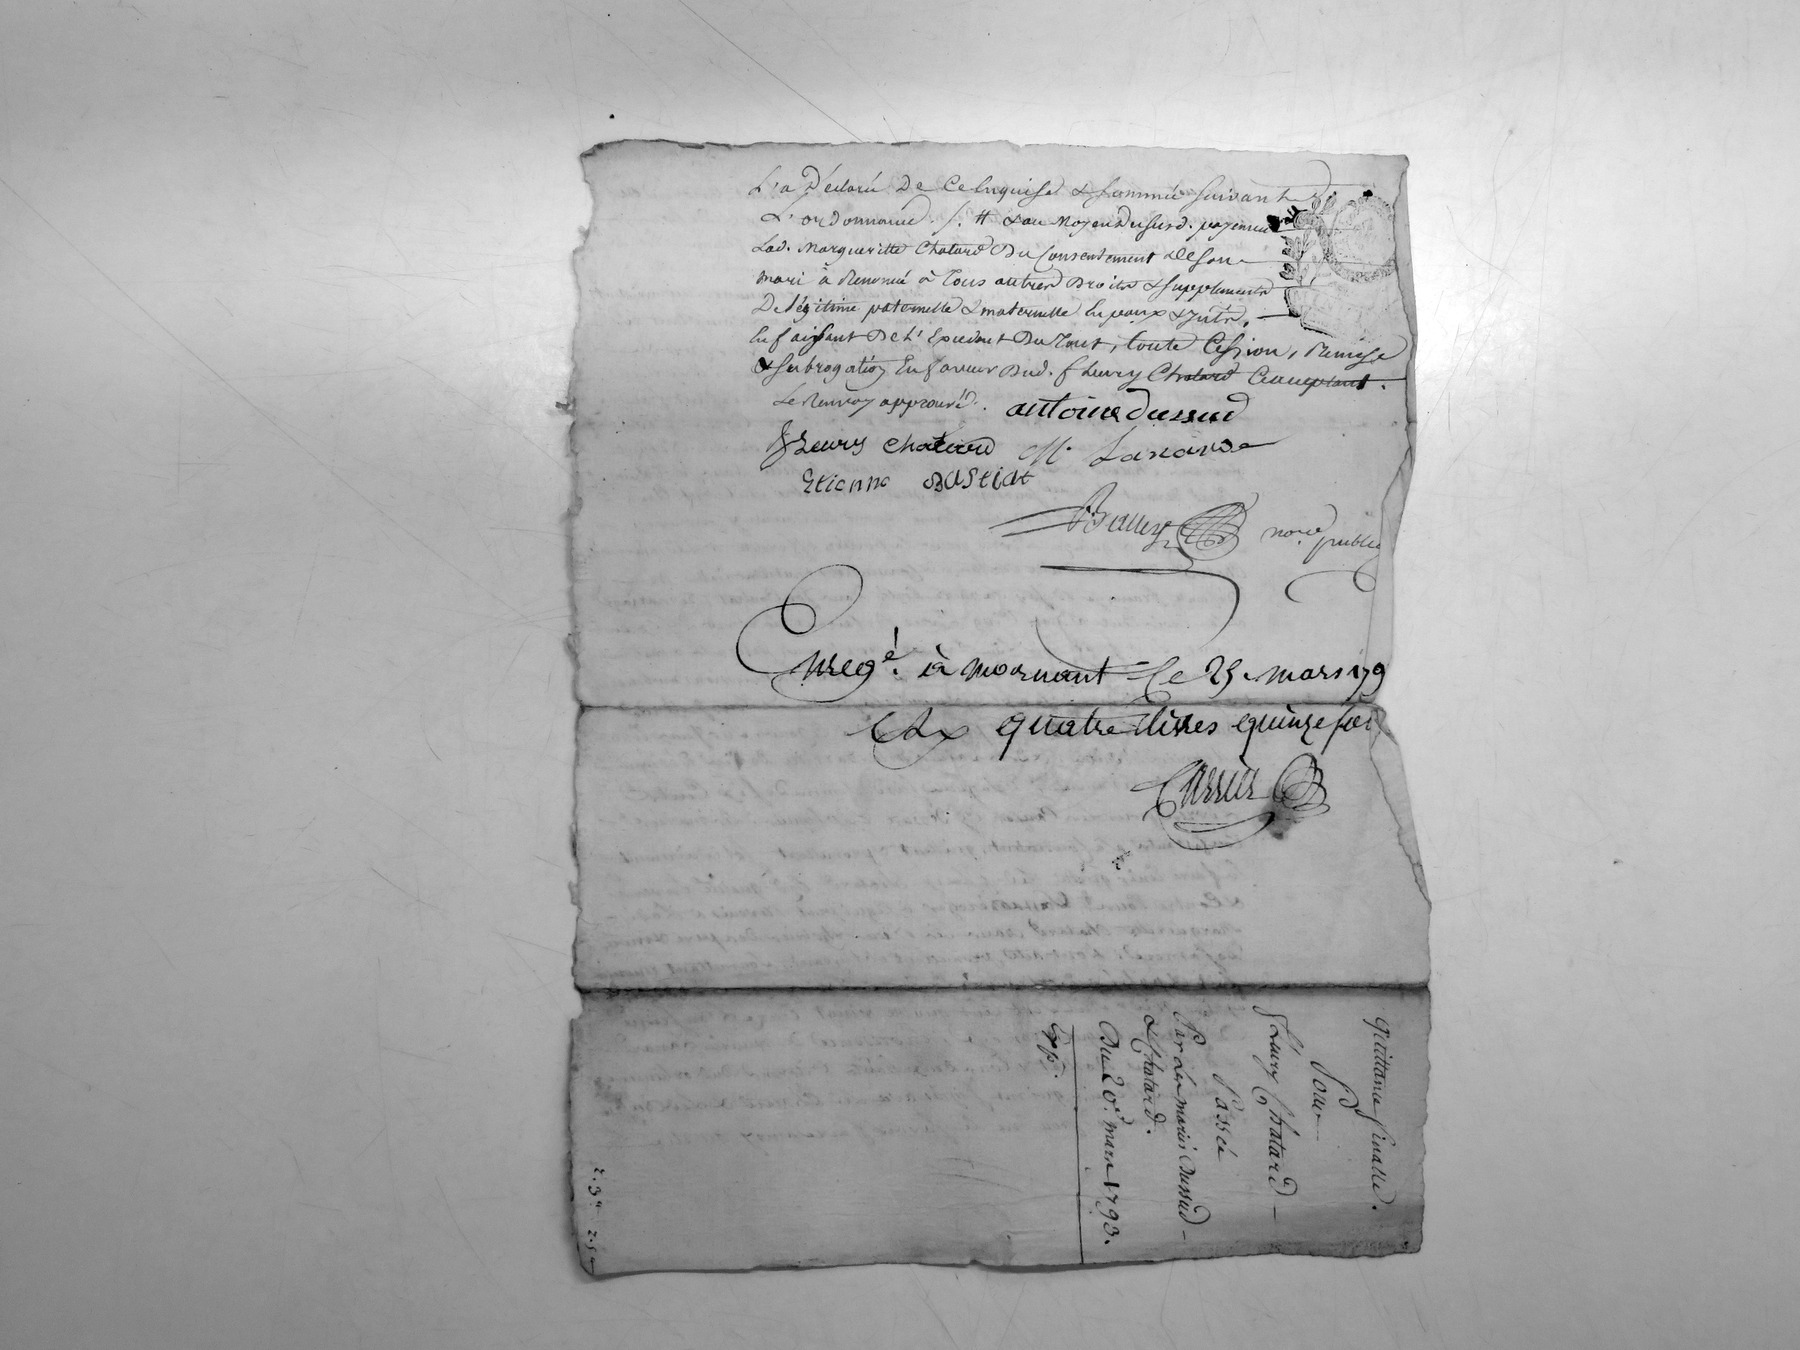 L'a Déclaré De Ce Enquise & Sommée Suivant
L'ordonnance ./. # & au Moyen Dususd. payement
Lad. Margueritte Chatard Du Consentement de son
mari à Renoncé à Tous autres Droits & supplements
De légitime paternelle & maternelle
En faisant De L'Excedent Du Tout, toute Cession, Remise
& Subrogation En faveur Dud. fleury Chatard Cacceptant.
Le Renvoy approuvé. antoine dussud
fleury chatard
Etienne BAStiAt
nore. public
Enregé. à mornant Le 25. mars 179
quatre livres quinze sols
quittance finalle.
Pour
fleury Chatard
Passée
Par Les mariés Dussud
& Chatard.
Du 20e. mars 1793.
Exp.